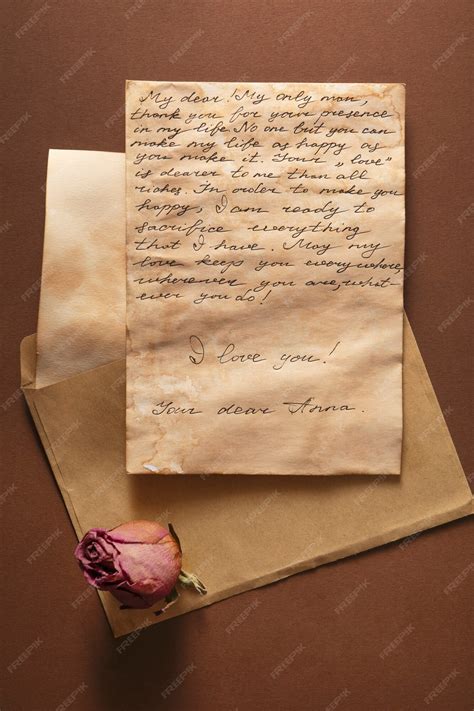 My dear! My only man,
thank you for your presence
in my life. No one but you can
make my life as happy as
you make it. Your „love"
is dearer to me than all
riches. In order to make you
happy, I am ready to
sacrifice everything
that I have. May my
love keep you everywhere,
wherever you are, what-
ever you do!
I love you!
Your dear Anna.